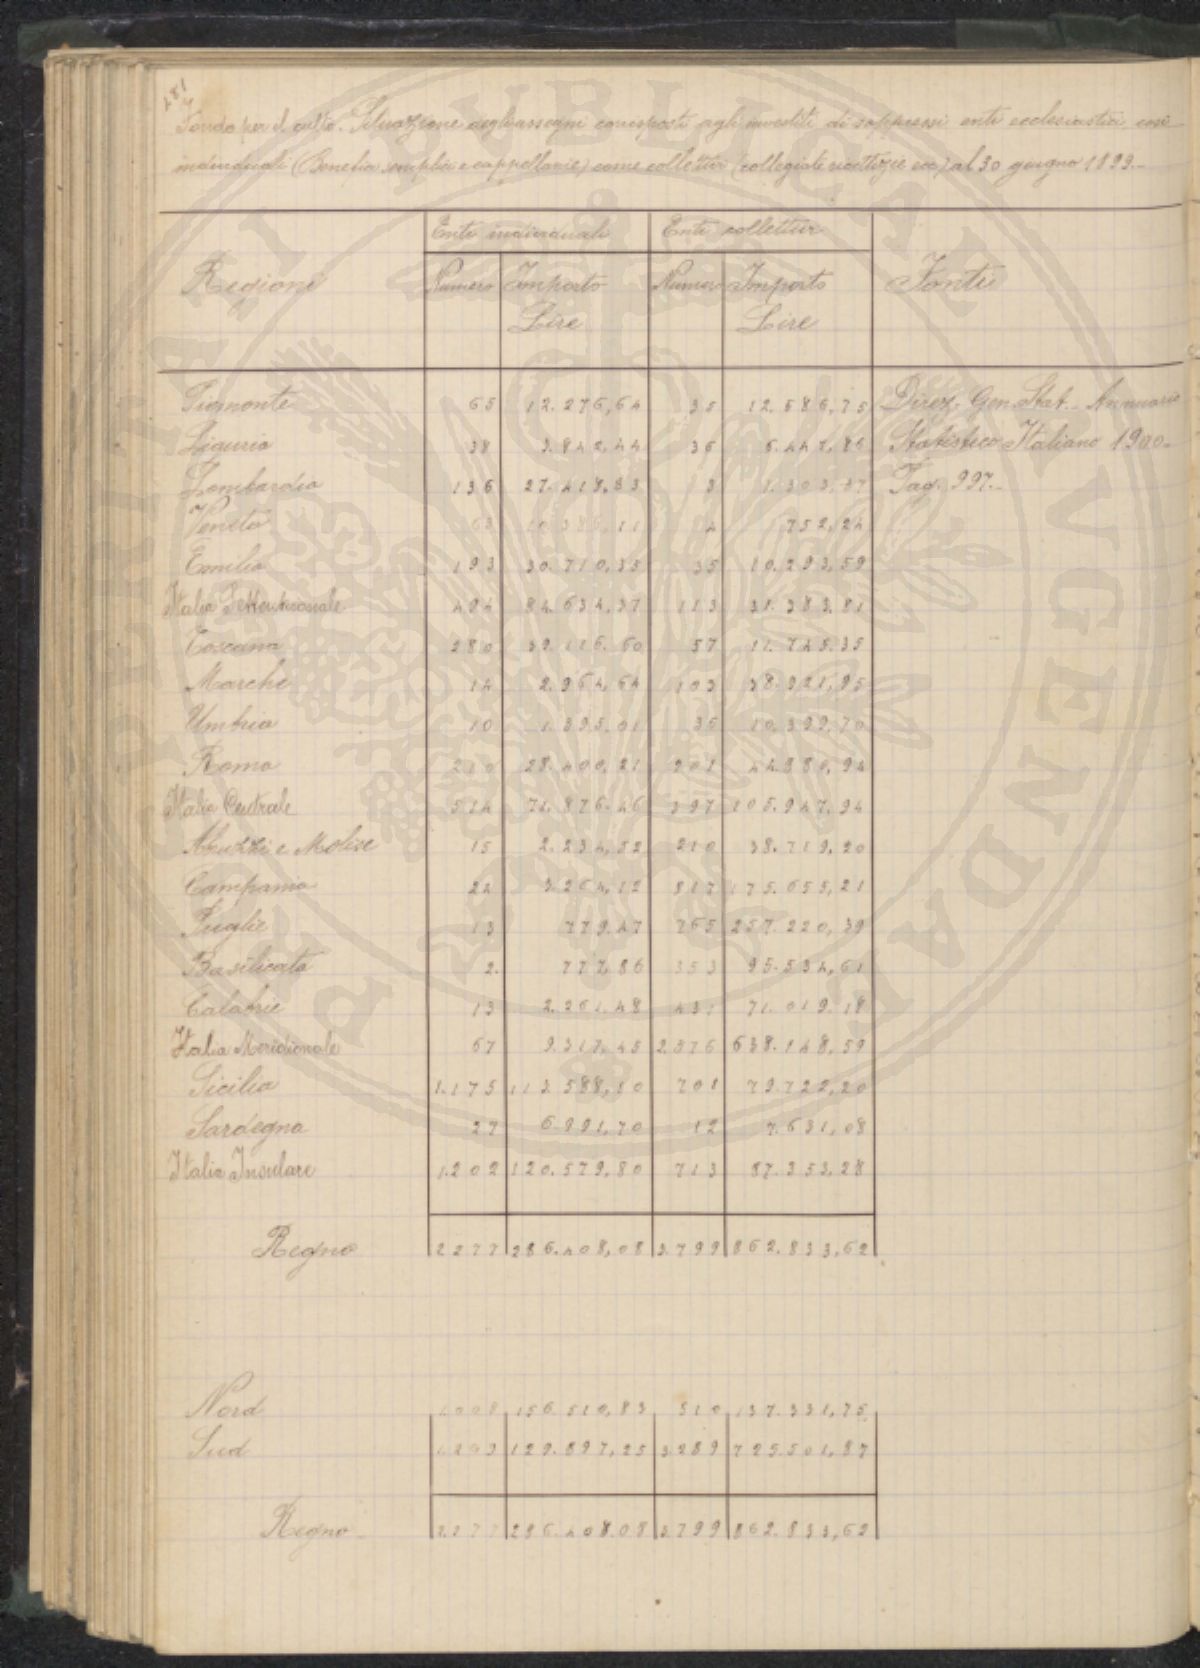 281
Fondo per il culto. Situazione degli assegni corrisposti agli investiti di soppressi enti ecclesiastici, così
individuali (Benefici semplici e cappellanie) come collettivi (collegiate ricettizie ecc) al 30 giugno 1899.-
Enti individuali Enti collettivi
Regioni Numero Importo Lire Numero Importo Lire Fonti
Piemonte 65 12.276,64 35 12.586,75 Direz. Gen. Stat. - Annuario
Liguria 38 3.842,44 36 6.447,86 Statistico Italiano 1900.-
Lombardia 136 27.419,83 3 1.303,37 Pag. 997.-
Veneto 63 10.385,11 4 752,24
Emilia 193 30.710,35 35 10.293,59
Italia Settentrionale 494 84.634,37 113 31.383,81
Toscana 280 39.116.60 57 11.745.35
Marche 14 2.964,64 103 38.921,95
Umbria 10 1.395,01 36 10.399,70
Roma 210 28.400,21 201 44.880,94
Italia Centrale 514 71.876.46 397 105.947.94
Abruzzi e Molise 15 2.234,52 210 38.719.20
Campania 24 3.264,12 617 175.655,21
Puglie 13 779.47 765 257.220,39
Basilicata 2. 777,86 353 95.534,61
Calabrie 13 2.261.48 431 71.019.18
Italia Meridionale 67 9.317,45 2.376 638.148,59
Sicilia 1.175 113.588,10 701 79.722,20
Sardegna 27 6.991,70 12 7.631,08
Italia Insulare 1.202 120.579,80 713 87.353,28
Regno 2277 286.408,08 3.799 862.833,62
Nord 1.008 156.510,83 510 137.331,75
Sud 1.269 129.897,25 3289 725.501,87
Regno - 2.277 286.408.08 3.799 862.833,62